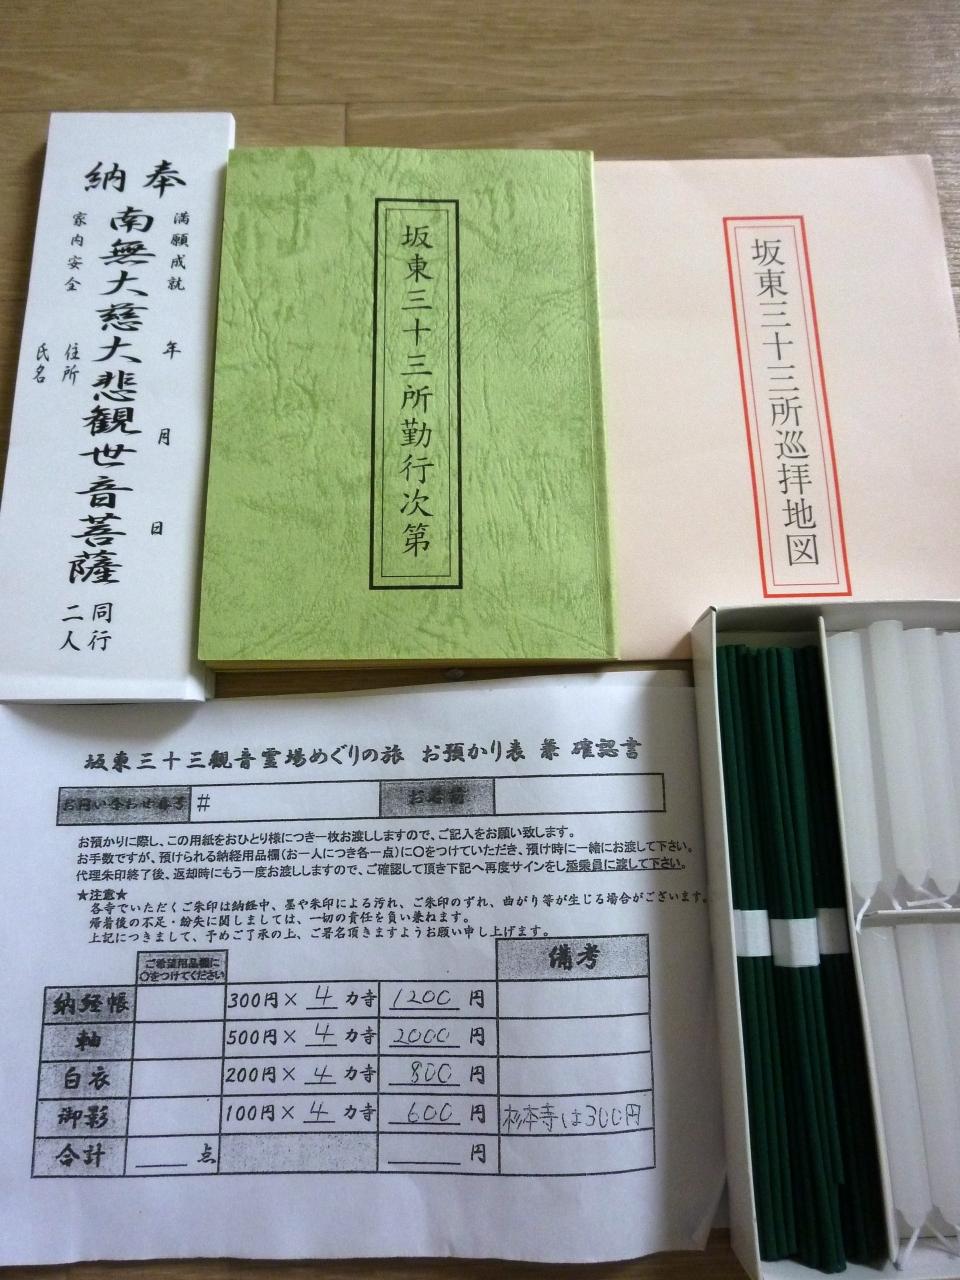 奉納
満願成就
家内安全
南無大慈大悲観世音菩薩
年 月 日
住所
氏名
同行
二人
坂東三十三所勤行次第
坂東三十三所巡拝地図
坂東三十三観音霊場めぐりの旅 お預かり表 兼 確認書
お問い合わせ番号 # お名前
お預かりに際し、この用紙をおひとり様につき一枚お渡ししますので、ご記入をお願い致します。
お手数ですが、預けられる納経用品欄(お一人につき各一点)に〇をつけていただき、預け時に一緒にお渡し下さい。
代理朱印終了後、返却時にもう一度お渡ししますので、ご確認して頂き下記へ再度サインをし添乗員に渡して下さい。
★注意★
各寺でいただくご朱印は納経中、墨や朱印による汚れ、ご朱印のずれ、曲がり等が生じる場合がございます。
帰着後の不足・紛失に関しましては、一切の責任を負い兼ねます。
上記につきまして、予めご了承の上、ご署名頂きますようお願い申し上げます。
ご希望用品欄に
〇をつけてください
備考
納経帳 300円× 4 カ寺 1200 円
軸 500円× 4 カ寺 2000 円
白衣 200円× 4 カ寺 800 円
御影 100円× 4 カ寺 600 円 杉本寺は300円
合計 点 円